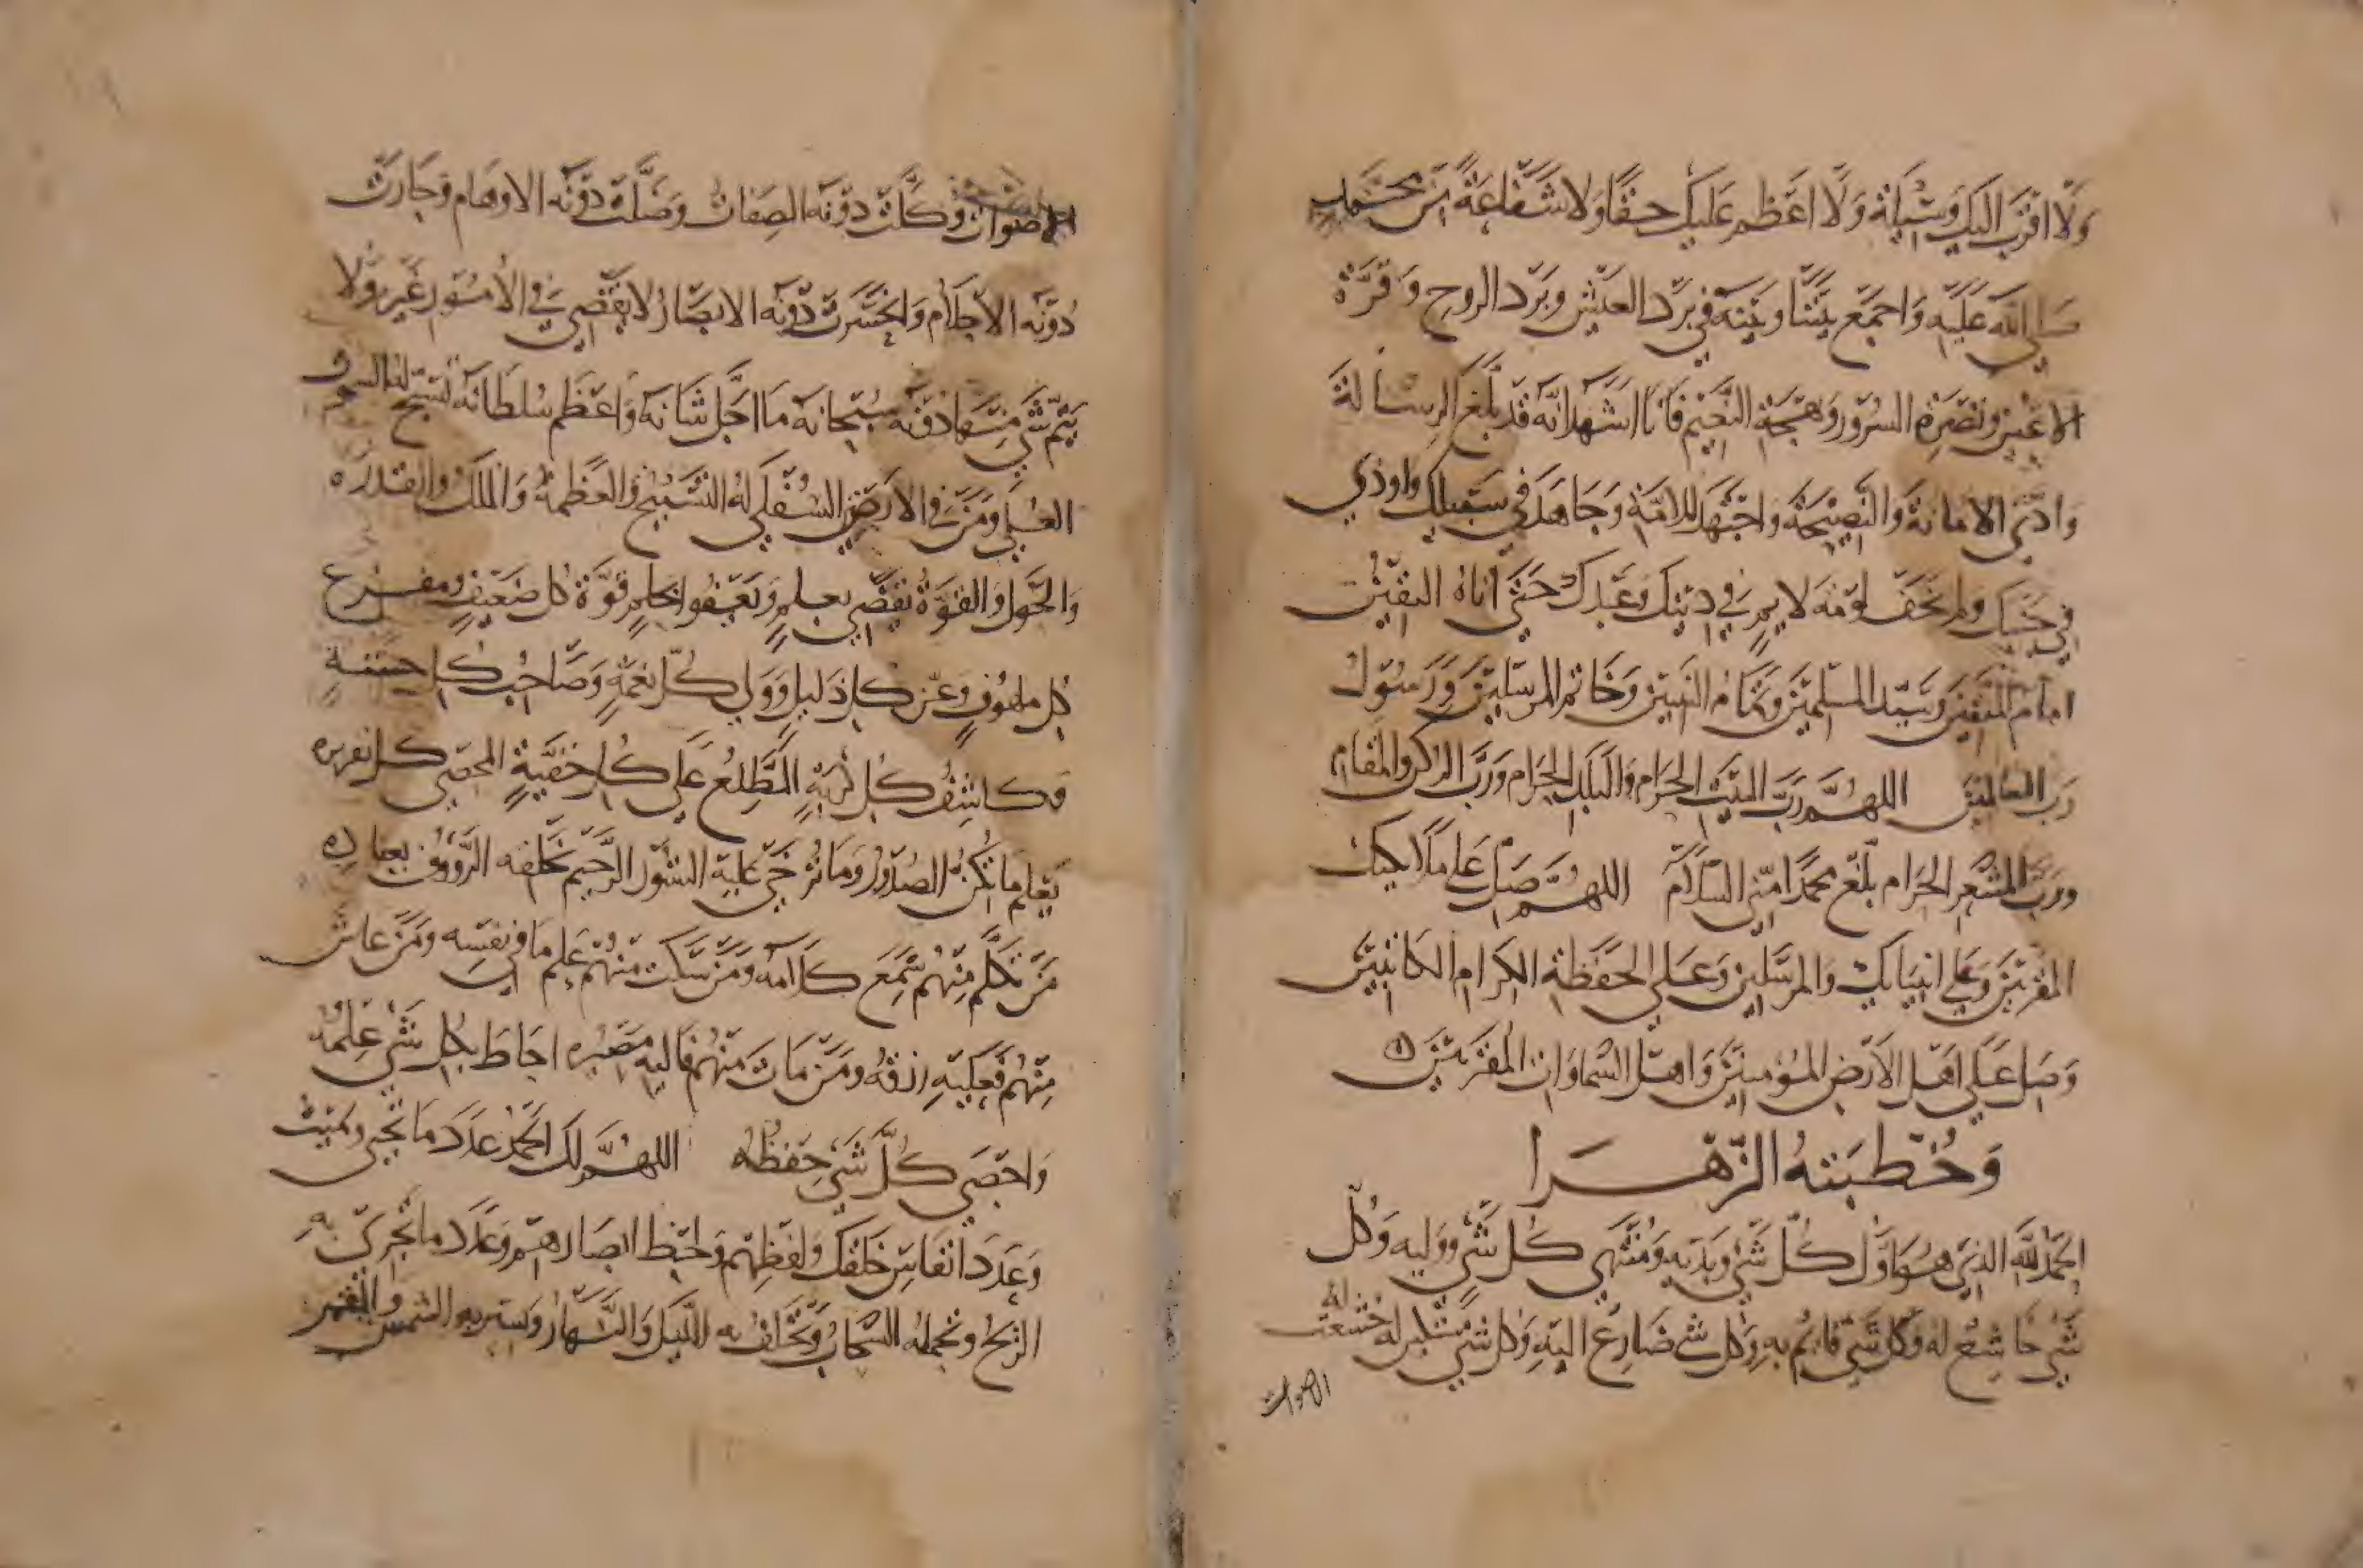 ولا اقرب اليك وسيلة ولا اعظم عليك حقا ولا شفاعة من محمد
صلى الله عليه واجمع بيننا وبينه في برد العيش وبرد الروح وقرة
الاعين ونضرة السرور وبهجة النعيم فانا اشهد انه قد بلغ الرسالة
وادى الامانة والنصيحة واجتهد للامة وجاهد في سبيلك واوذي
في جنبك ولم يخف لومة لايم في دينك وعبدك حتى اتاه اليقين
امام المتقين وسيد المسلمين وتمام النبيين وخاتم المرسلين ورسول
رب العالمين اللهم رب البيت الحرام والبلد الحرام ورب الركن والمقام
ورب المشعر الحرام بلغ محمدا مني السلام اللهم صل على ملايكتك
المقربين وعلى انبيايك والمرسلين وعلى الحفظة الكرام الكاتبين
وصل على اهل الارض المؤمنين واهل السماوات المقربين
وخطبته الزهرا
الحمد لله الذي هو اول كل شي وبديه ومنتهى كل شي ووليه وكل
شي خاشع له وكل شي قايم به وكل شي ضارع اليه وكل شي مستكين له خشعت له
الاصوات
الاصوات وكلت دونه الصفات وضلت دونه الاوهام وحارت
دونه الاحلام وانحسرت دونه الابصار لا يقضي في الامور غيره ولا
يتم شي منها دونه سبحانه ما اجل شانه واعظم سلطانه تسبح له السموات
العلى ومن في الارض السفلى له التسبيح والعظمة والملك والقدرة
والحول والقوة يقضي بعلم ويعفوا بحلم قوة كل ضعيف ومفزع
كل ملهوف وعز كل ذليل وولي كل نعمة وصاحب كل حسنة
وكاشف كل كربة المطلع على كل خفية المحصي كل سريرة
يعلم ما تكن الصدور وما ترخى عليه الستور الرحيم بخلقه الرؤوف بعباده
من تكلم منهم سمع كلامه ومن سكت منهم علم ما في نفسه ومن عاش
منهم فعليه رزقه ومن مات منهم فاليه مصيره احاط بكل شي علمه
واحصى كل شي حفظه اللهم لك الحمد عدد ما تحيي وتميت
وعدد انفاس خلقك ولفظهم ولحظ ابصارهم وعدد ما تجري به
الريح وتحمله السحاب ويختلف به الليل والنهار وتسير به الشمس والقمر